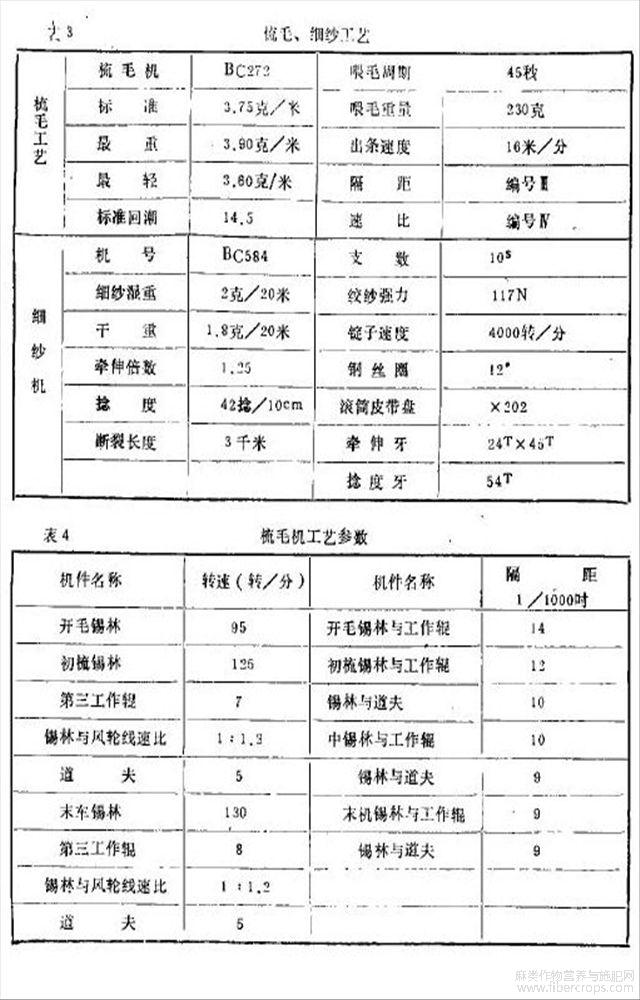 表3 梳毛、细纱工艺
梳毛工艺
梳毛机 BC272 喂毛周期 45秒
标准 3.75克/米 喂毛重量 230克
最重 3.90克/米 出条速度 16米/分
最轻 3.60克/米 隔距 编号Ⅲ
标准回潮 14.5 速比 编号Ⅳ
细纱机
机号 BC584 支数 10s
细纱湿重 2克/20米 绞纱强力 117N
干重 1.8克/20米 锭子速度 4000转/分
牵伸倍数 1.25 钢丝圈 12#
捻度 42捻/10cm 滚筒皮带盘 ×202
断裂长度 3千米 牵伸牙 24T×45T
捻度牙 54T
表4 梳毛机工艺参数
机件名称 转速(转/分) 机件名称 隔距
1/1000吋
开毛锡林 95 开毛锡林与工作辊 14
初梳锡林 126 初梳锡林与工作辊 12
第三工作辊 7 锡林与道夫 10
锡林与风轮线速比 1:1.3 中锡林与工作辊 10
道夫 5 锡林与道夫 9
末车锡林 130 末机锡林与工作辊 9
第三工作辊 8 锡林与道夫 9
锡林与风轮线速比 1:1.2
道夫 5
麻类作物营养与施肥网
www.fibercrops.com